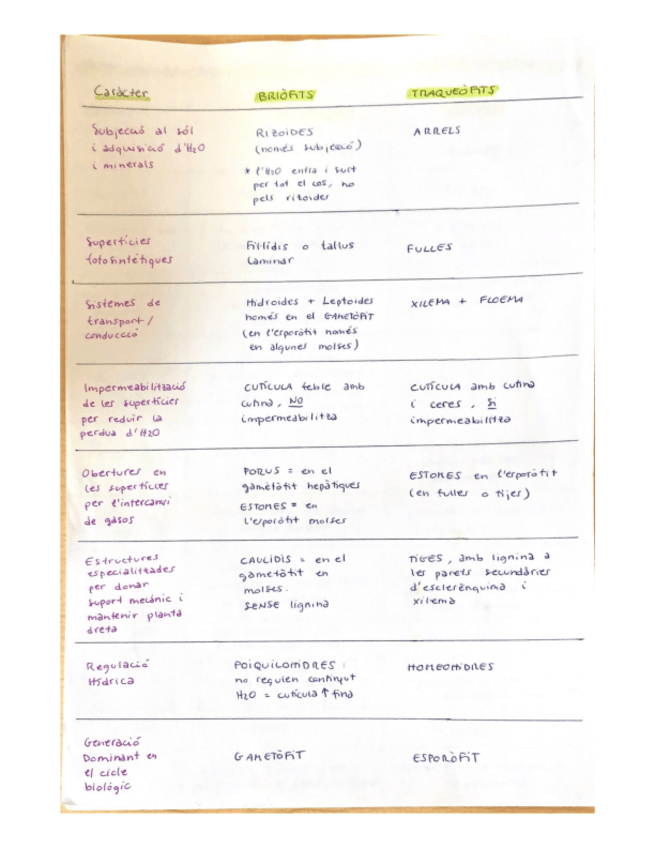 Caràcter BRIÒFITS TRAQUEÒFITS
Subjecció al sól
i adquisició d'H2O
i minerals
RIZOIDES
(només subjecció)
* l'H2O entra i surt
per tot el cos, no
pels rizoides
ARRELS
Superfícies
fotosintètiques
Fil·lidis o tallus
laminar
FULLES
Sistemes de
transport/
conducció
Hidroides + Leptoides
només en el GAMETÒFIT
(en l'esporòfit només
en algunes molses)
XILEMA + FLOEMA
Impermeabilització
de les superfícies
per reduir la
perdua d'H2O
CUTÍCULA feble amb
cutina, NO
impermeabilitza
CUTÍCULA amb cutina
i ceres, SI
impermeabilitza
Obertures en
les superfícies
per l'intercanvi
de gasos
PORUS = en el
gametòfit hepàtiques
ESTOMES = en
l'esporòfit molses
ESTOMES en l'esporòfit
(en fulles o tijes)
Estructures
especialitzades
per donar
suport mecànic i
mantenir planta
dreta
CAULIDIS = en el
gametòfit en
molses.
SENSE lignina
TIGES, amb lignina a
les parets secundàries
d'esclerènquima i
xilema
Regulació
Hídrica
POIQUILOHIDRES:
no regulen contingut
H2O = cutícula ↑ fina
HOMEOHIDRES
Generació
Dominant en
el cicle
biològic
GAMETÒFIT
ESPORÒFIT